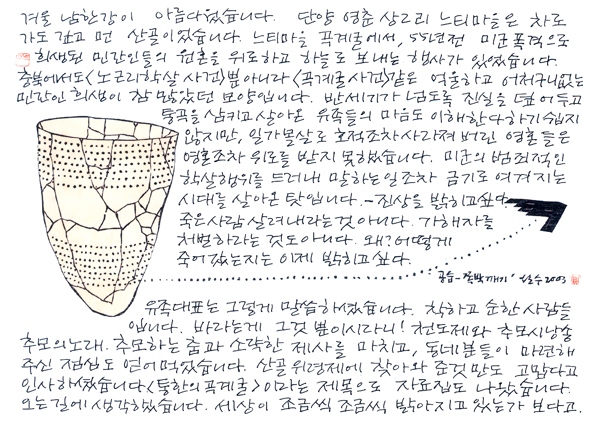 겨울 남한강이 아름다웠습니다. 단양 영춘 상2리 느티마을은 차로
가도 깊고 먼 산골이었습니다. 느티마을 곡계굴에서, 55년전 미군폭격으로
희생된 민간인들의 원혼을 위로하고 하늘로 보내는 행사가 있었습니다.
충북에서도 <노근리학살 사건>뿐아니라 <곡계굴사건>같은 억울하고 어처구니없는
민간인 희생이 참 많았던 모양입니다. 반세기가 넘도록 진실을 덮어두고
통곡을 삼키고 살아온 유족들의 마음도 이해한다하기 쉽지
않지만, 일가몰살로 호적조차 사라져 버린 영혼들은
영혼조차 위로를 받지 못했습니다. 미군의 범죄적인
학살행위를 드러내 말하는 일조차 금기로 여겨지는
시대를 살아온 탓입니다. -진상을 밝히고싶다.
죽은사람 살려내라는것 아니다. 가해자를
처벌하라는 것도아니다. 왜? 어떻게
죽어갔는지는 이제 밝히고싶다.
공습- 쪽박깨기' 2003
유족대표는 그렇게 말씀하셨습니다. 착하고 순한 사람들
입니다. 바라는게 그것 뿐이시라니! 천도제와 추모시낭송
추모의노래. 추모하는 춤과 소략한 제사를 마치고, 동네분들이 마련해
주신 점심도 얻어먹었습니다. 산골 위령제에 찾아와 준것만도 고맙다고
인사하셨습니다 <통한의곡계굴>이라는 제목으로 자료집도 나왔습니다.
오는길에 생각했습니다. 세상이 조금씩 조금씩 밝아지고 있는가 보다고.